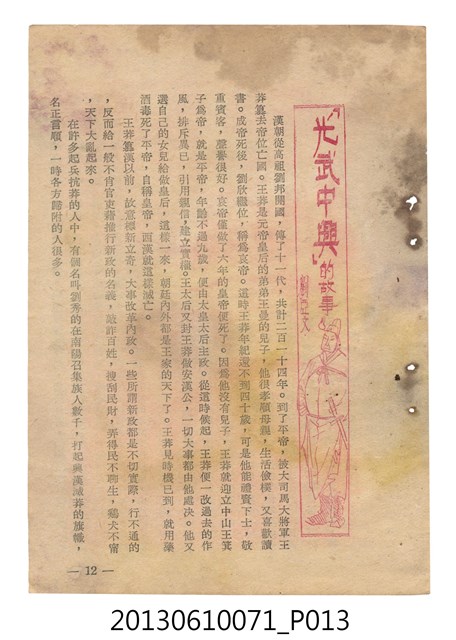 「光武中興」的故事
漢朝從高祖劉邦開國，傳了十一代，共計二百一十四年。到了平帝，被大司馬大將軍王
莽篡去帝位亡國。王莽是元帝皇后的弟弟王曼的兒子，他很孝順母親，生活儉樸，又喜歡讀
書。成帝死後，劉欣繼位，稱爲哀帝。這時王莽年紀還不到四十歲，可是他能禮賢下士，敬
重賓客，聲譽很好。哀帝僅做了六年的皇帝便死了。因爲他沒有兒子，王莽就迎立中山王箕
子爲帝，就是平帝，年齡不過九歲，便由太皇太后主政。從這時候起，王莽便一改過去的作
風，排斥異已，引用親信，建立實權。王太后又封王莽做安漢公，一切大事都由他處決。他又
選自己的女兒給做皇后，這樣一來，朝廷內外都是王家的天下了。王莽見時機已到，就用藥
酒毒死了平帝，自稱皇帝，西漢就這樣滅亡。
王莽篡漢以前，故意標新立奇，大事改革內政。一些所謂新政都是不切實際，行不通的
，反而給一般不肯官吏藉推行新政的名義，敲詐百姓，搜刮民財，弄得民不聊生，鷄犬不甯
，天下大亂起來。
在許多起兵抗莽的人中，有個名叫劉秀的在南陽召集族人數千，打起興漢滅莽的旗幟，
名正言順，一時各方歸附的人很多。
— 12 —
20130610071_P013